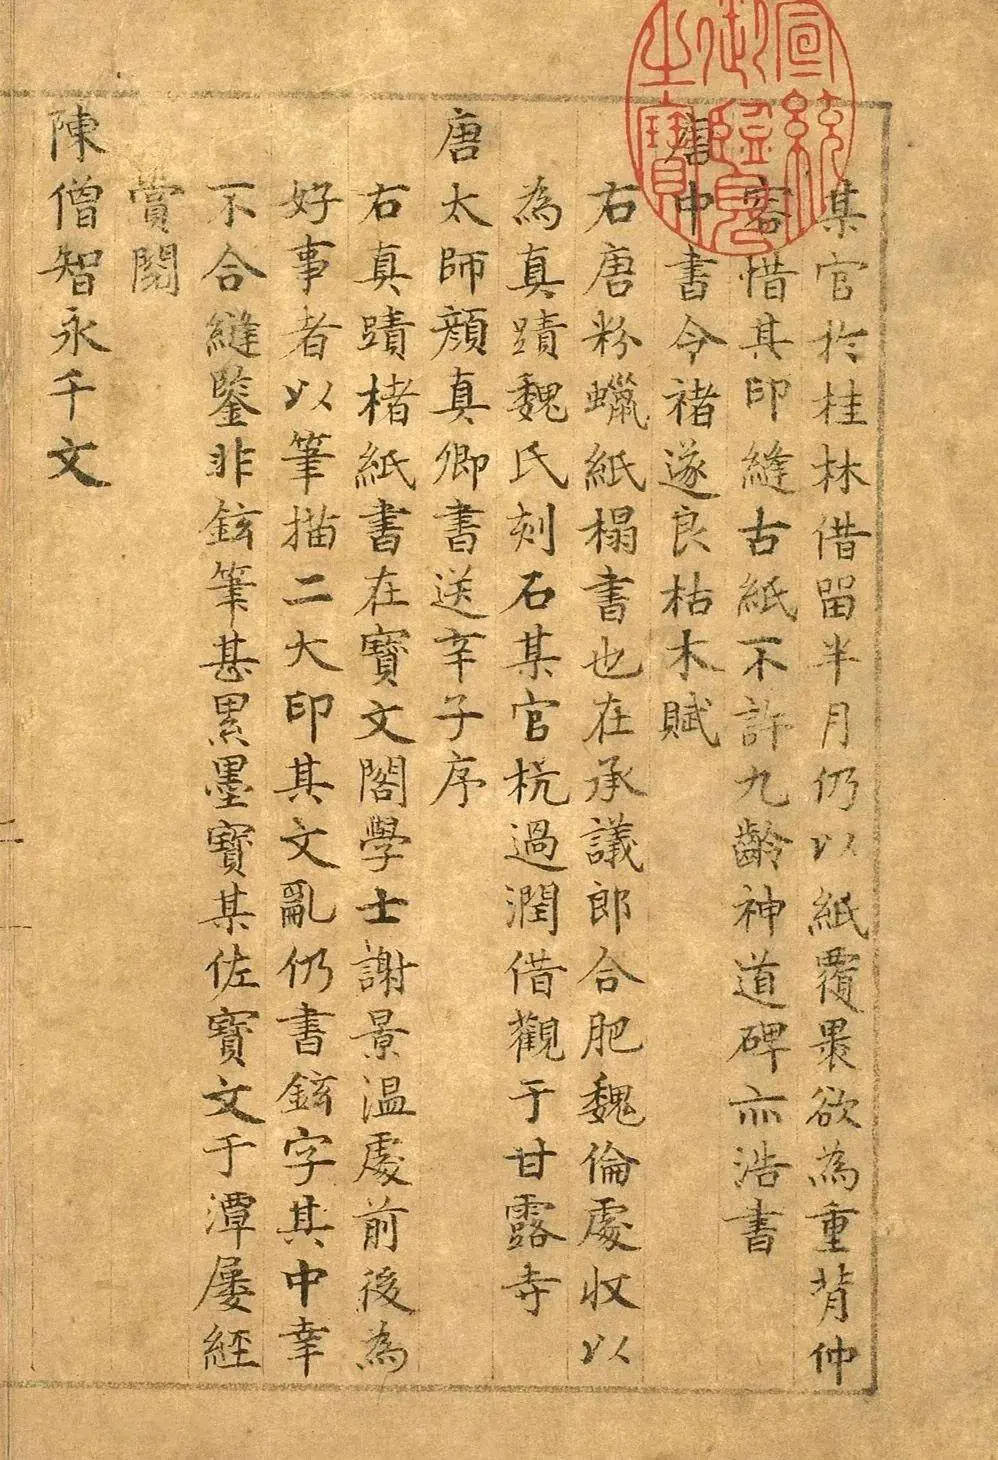 宣統御覽之寶
某官扵桂林借留半月仍以紙覆褁欲為重背仲
容惜其印縫古紙不許九齡神道碑亦浩書
唐中書令褚遂良枯木賦
右唐粉蠟紙榻書也在承議郎合肥魏倫處收以
為真蹟魏氏刻石某官杭過潤借觀于甘露寺
唐太師顔真卿書送辛子序
右真蹟楮紙書在寶文閣學士謝景温處前後為
好事者以筆描二大印其文亂仍書鉉字其中幸
不合縫鑒非鉉筆甚累墨寶某佐寶文于潭屢經
賞閱
陳僧智永千文